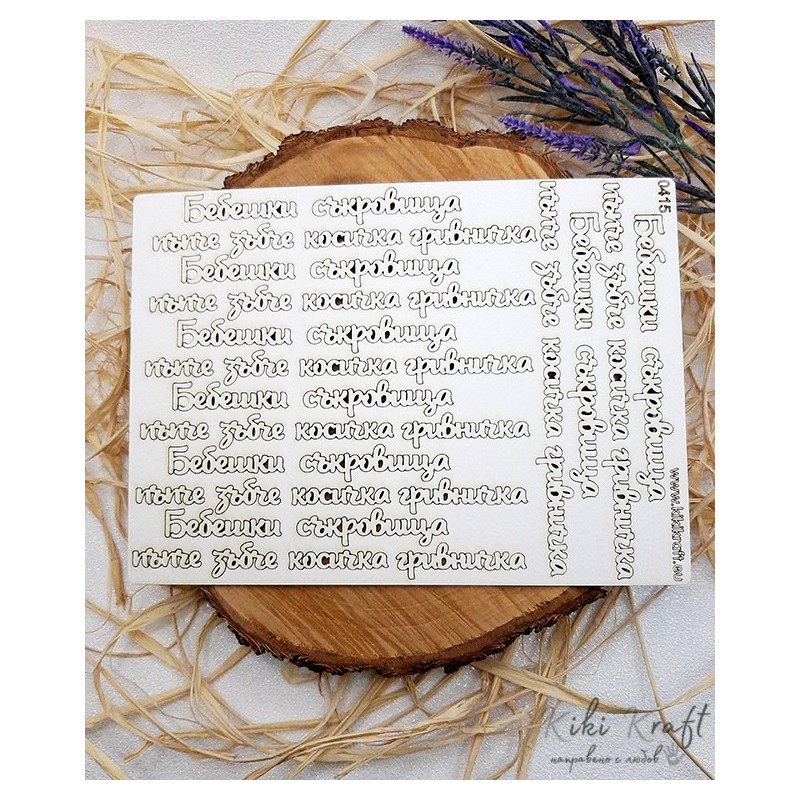 Бебешки съкровища
пъпче зъбче косичка гривничка
Бебешки съкровища
пъпче зъбче косичка гривничка
Бебешки съкровища
пъпче зъбче косичка гривничка
Бебешки съкровища
пъпче зъбче косичка гривничка
Бебешки съкровища
пъпче зъбче косичка гривничка
Бебешки съкровища
пъпче зъбче косичка гривничка
0415
www.kikikraft.eu
Бебешки съкровища
пъпче зъбче косичка гривничка
Бебешки съкровища
пъпче зъбче косичка гривничка
Kiki Kraft
направено с любов